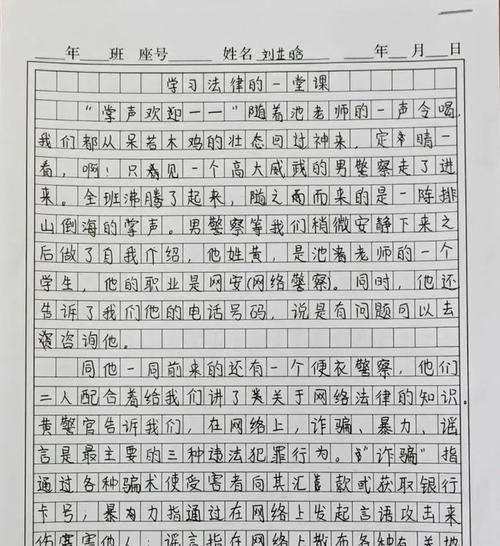 年 班 座号 姓名 刘芷晗 年 月 日
学习法律的一堂课
“掌声欢迎——”随着池老师的一声令喝,
我们都从呆若木鸡的壮态回过神来,定睛一
看,啊!只看见一个高大威武的男警察走了进
来。全班沸腾了起来,随之而而来的是一阵排
山倒海的掌声。男警察等我们稍微安静下来之
后做了自我介绍,他姓黄,是池老师的一个
学生,他的职业是网安(网络警察)。同时,他还
告诉了我们他的电话号码,说是有问题可以去
咨询他。
同他一同前来的还有一个便衣警察,他们
二人配合着给我们讲了类关于网络法律的知识。
黄警官告诉我们,在网络上,诈骗、暴力、谣
言是最主要的三种违法犯罪行为。“诈骗”指
通过各种骗术使受害者向其汇款或获取银行
卡号,暴力指通过在网络上发起言语攻击来
伤害他人;谣言指在网络上散布各种有关